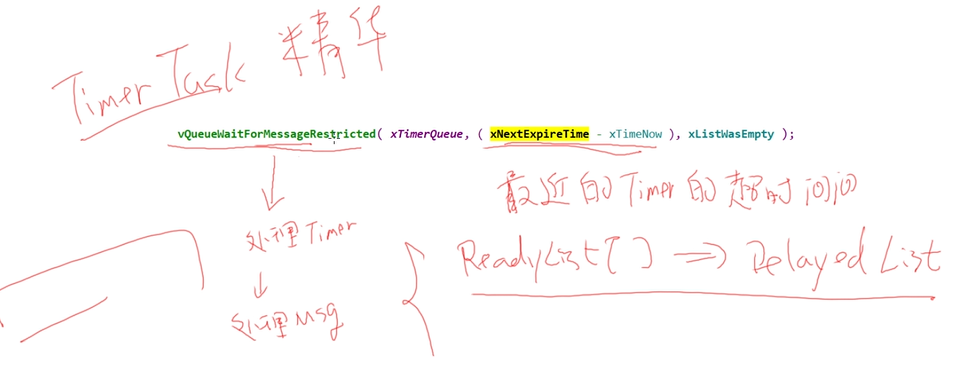 TimerTask 精华
vQueueWaitForMessageRestricted( xTimerQueue, ( xNextExpireTime - xTimeNow ), xListWasEmpty );
最近的Timer的超时间
处理Timer
ReadyList[ ] => Delayed List
处理Msg